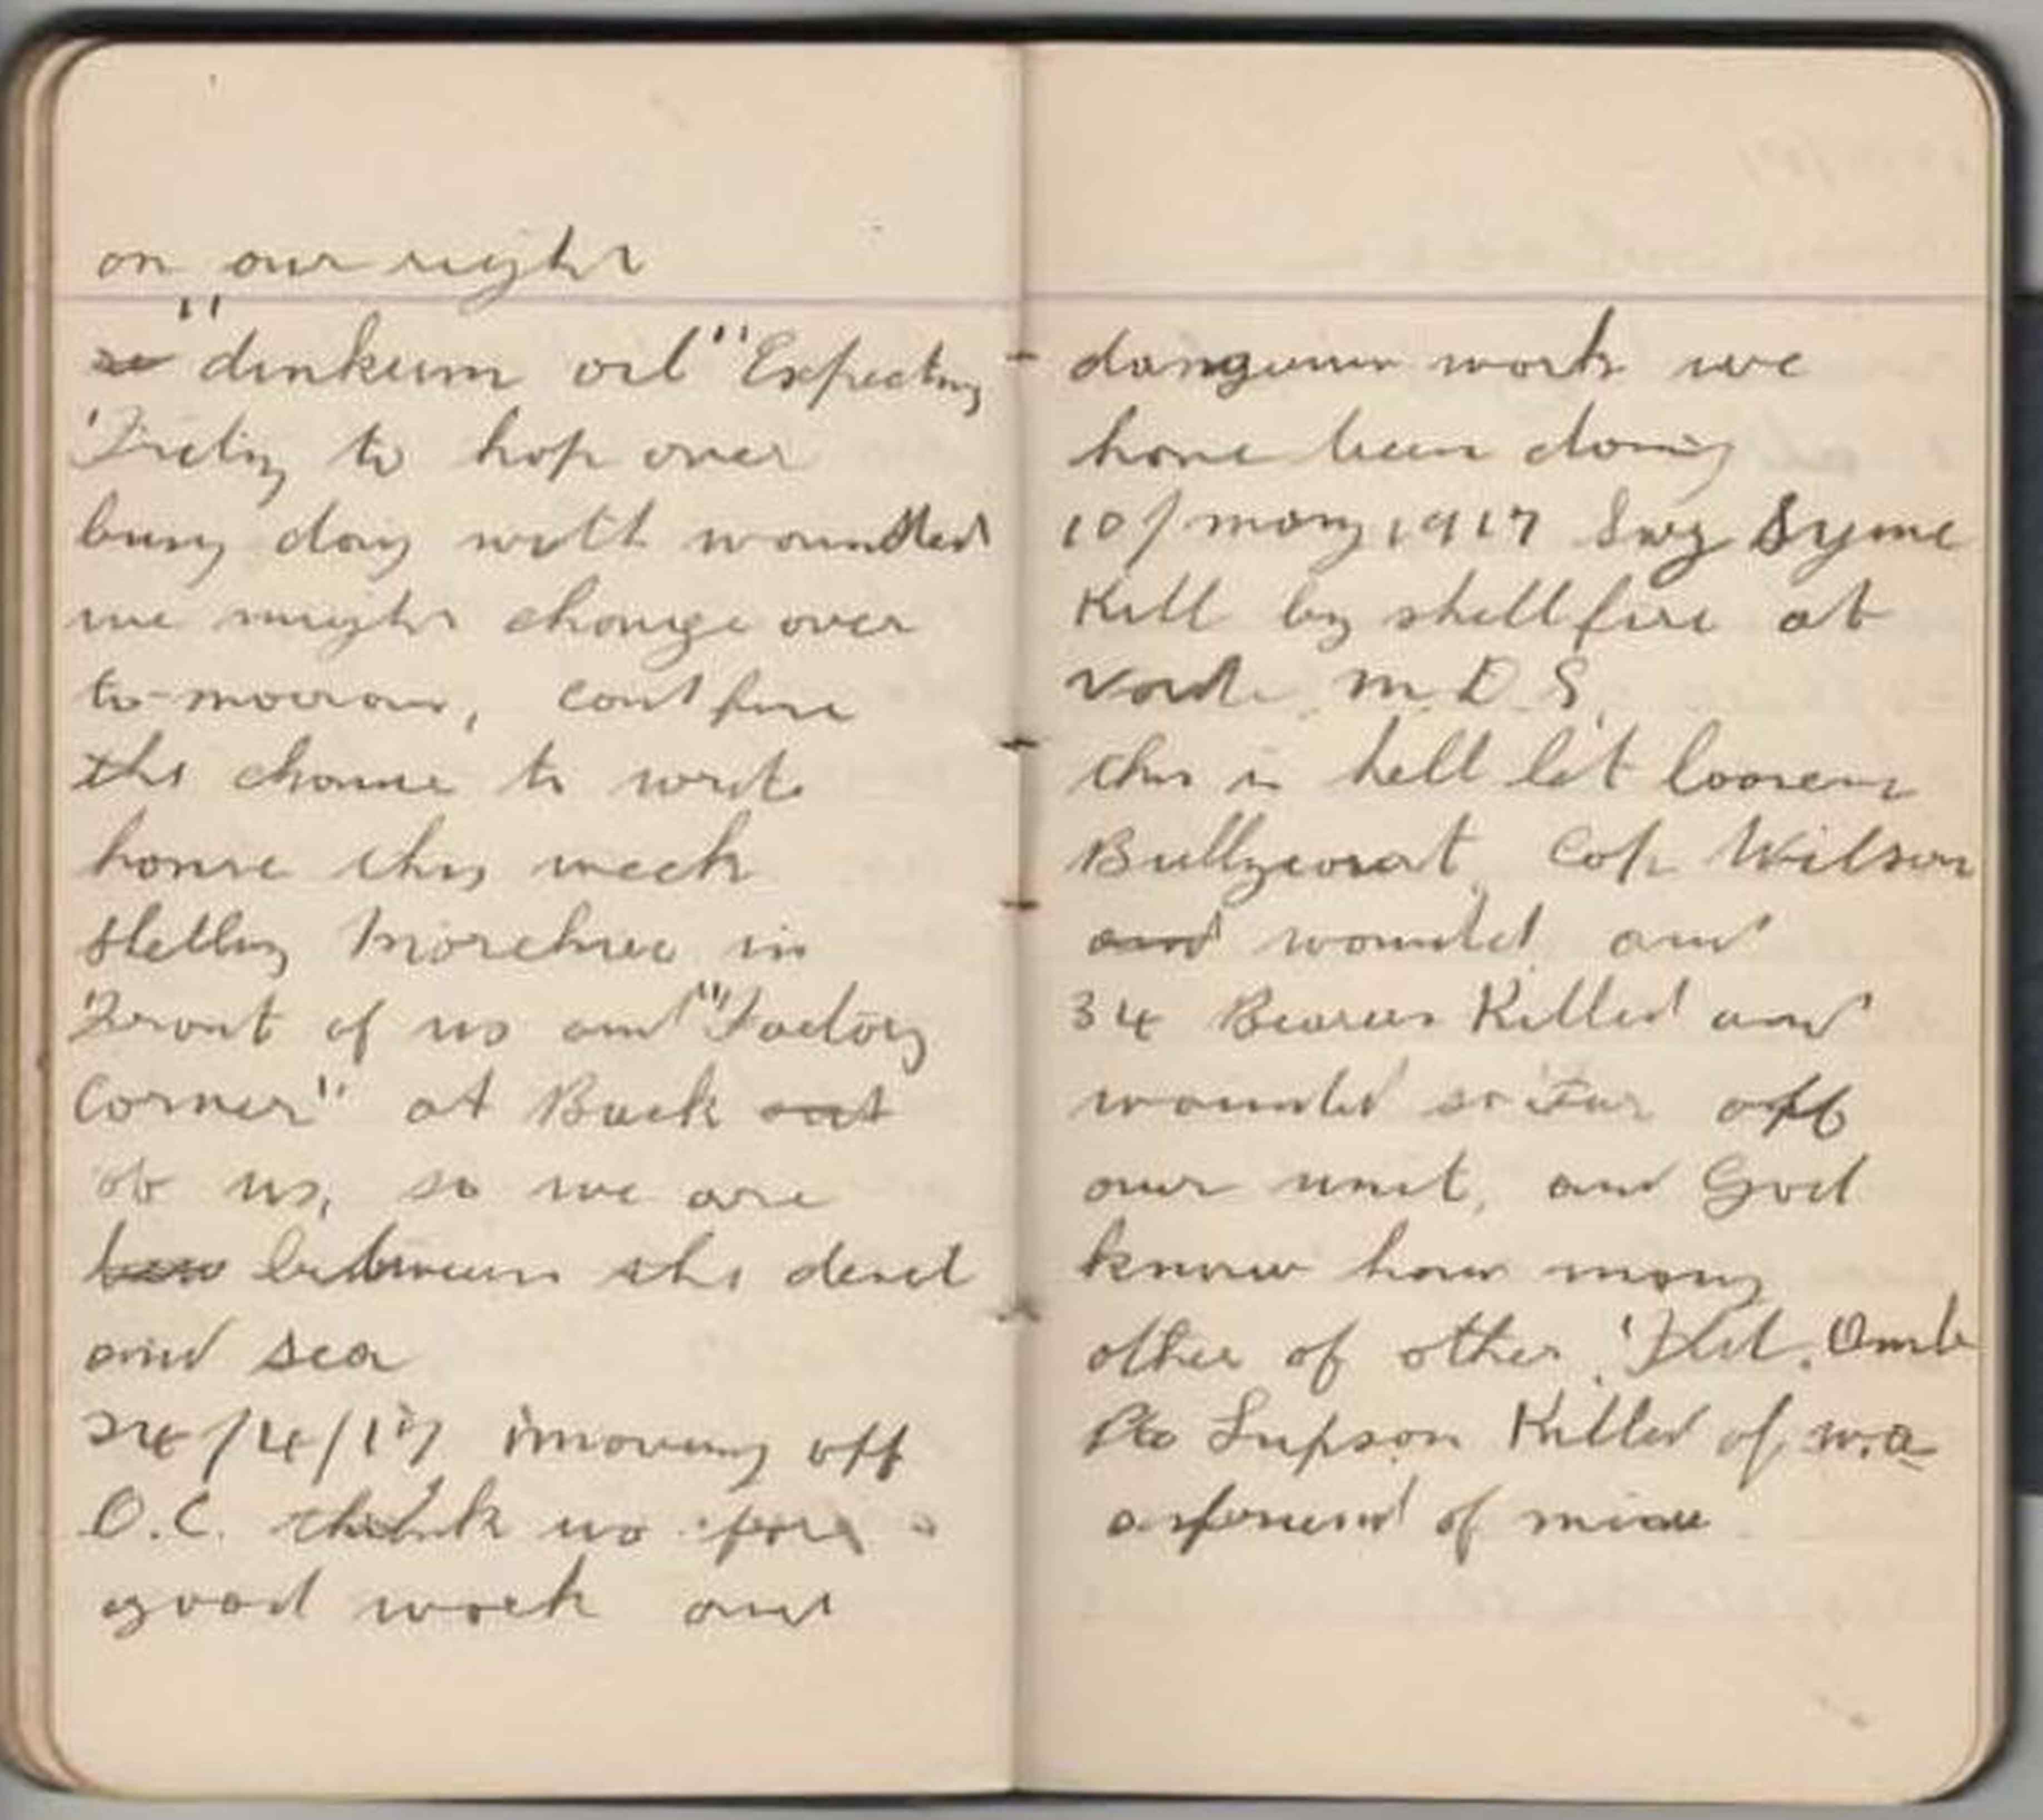 on our right
"dinkum oil" Expecting
Fritz to hop over
busy day with wounded
we might change over
to-morrow, cant find
the chance to write
home this week
shelling in
Front of us and "Factory
Corner" at Back
of us, so we are
between the devil
and sea
24/4/17 moving off
O.C. thank us for
good work and
dangerous work we
have been doing
10/may 1917 Syme
Kill by shell fire at
M.D.S.
this is hell let loose
Bullycourt Cop Wilson
and wounded and
34 Bearers Killed and
wounded so Far off
our unit, and God
know how many
other of other Fld. Amb
Pte Killed of W.A
a friend of mine